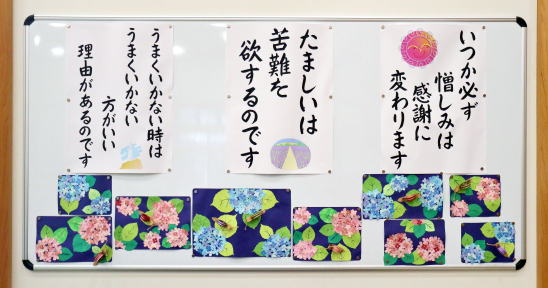 いつか必ず
憎しみは
感謝に
変わります
たましいは
苦難を
欲するのです
うまくいかない時は
うまくいかない
方がいい
理由があるのです